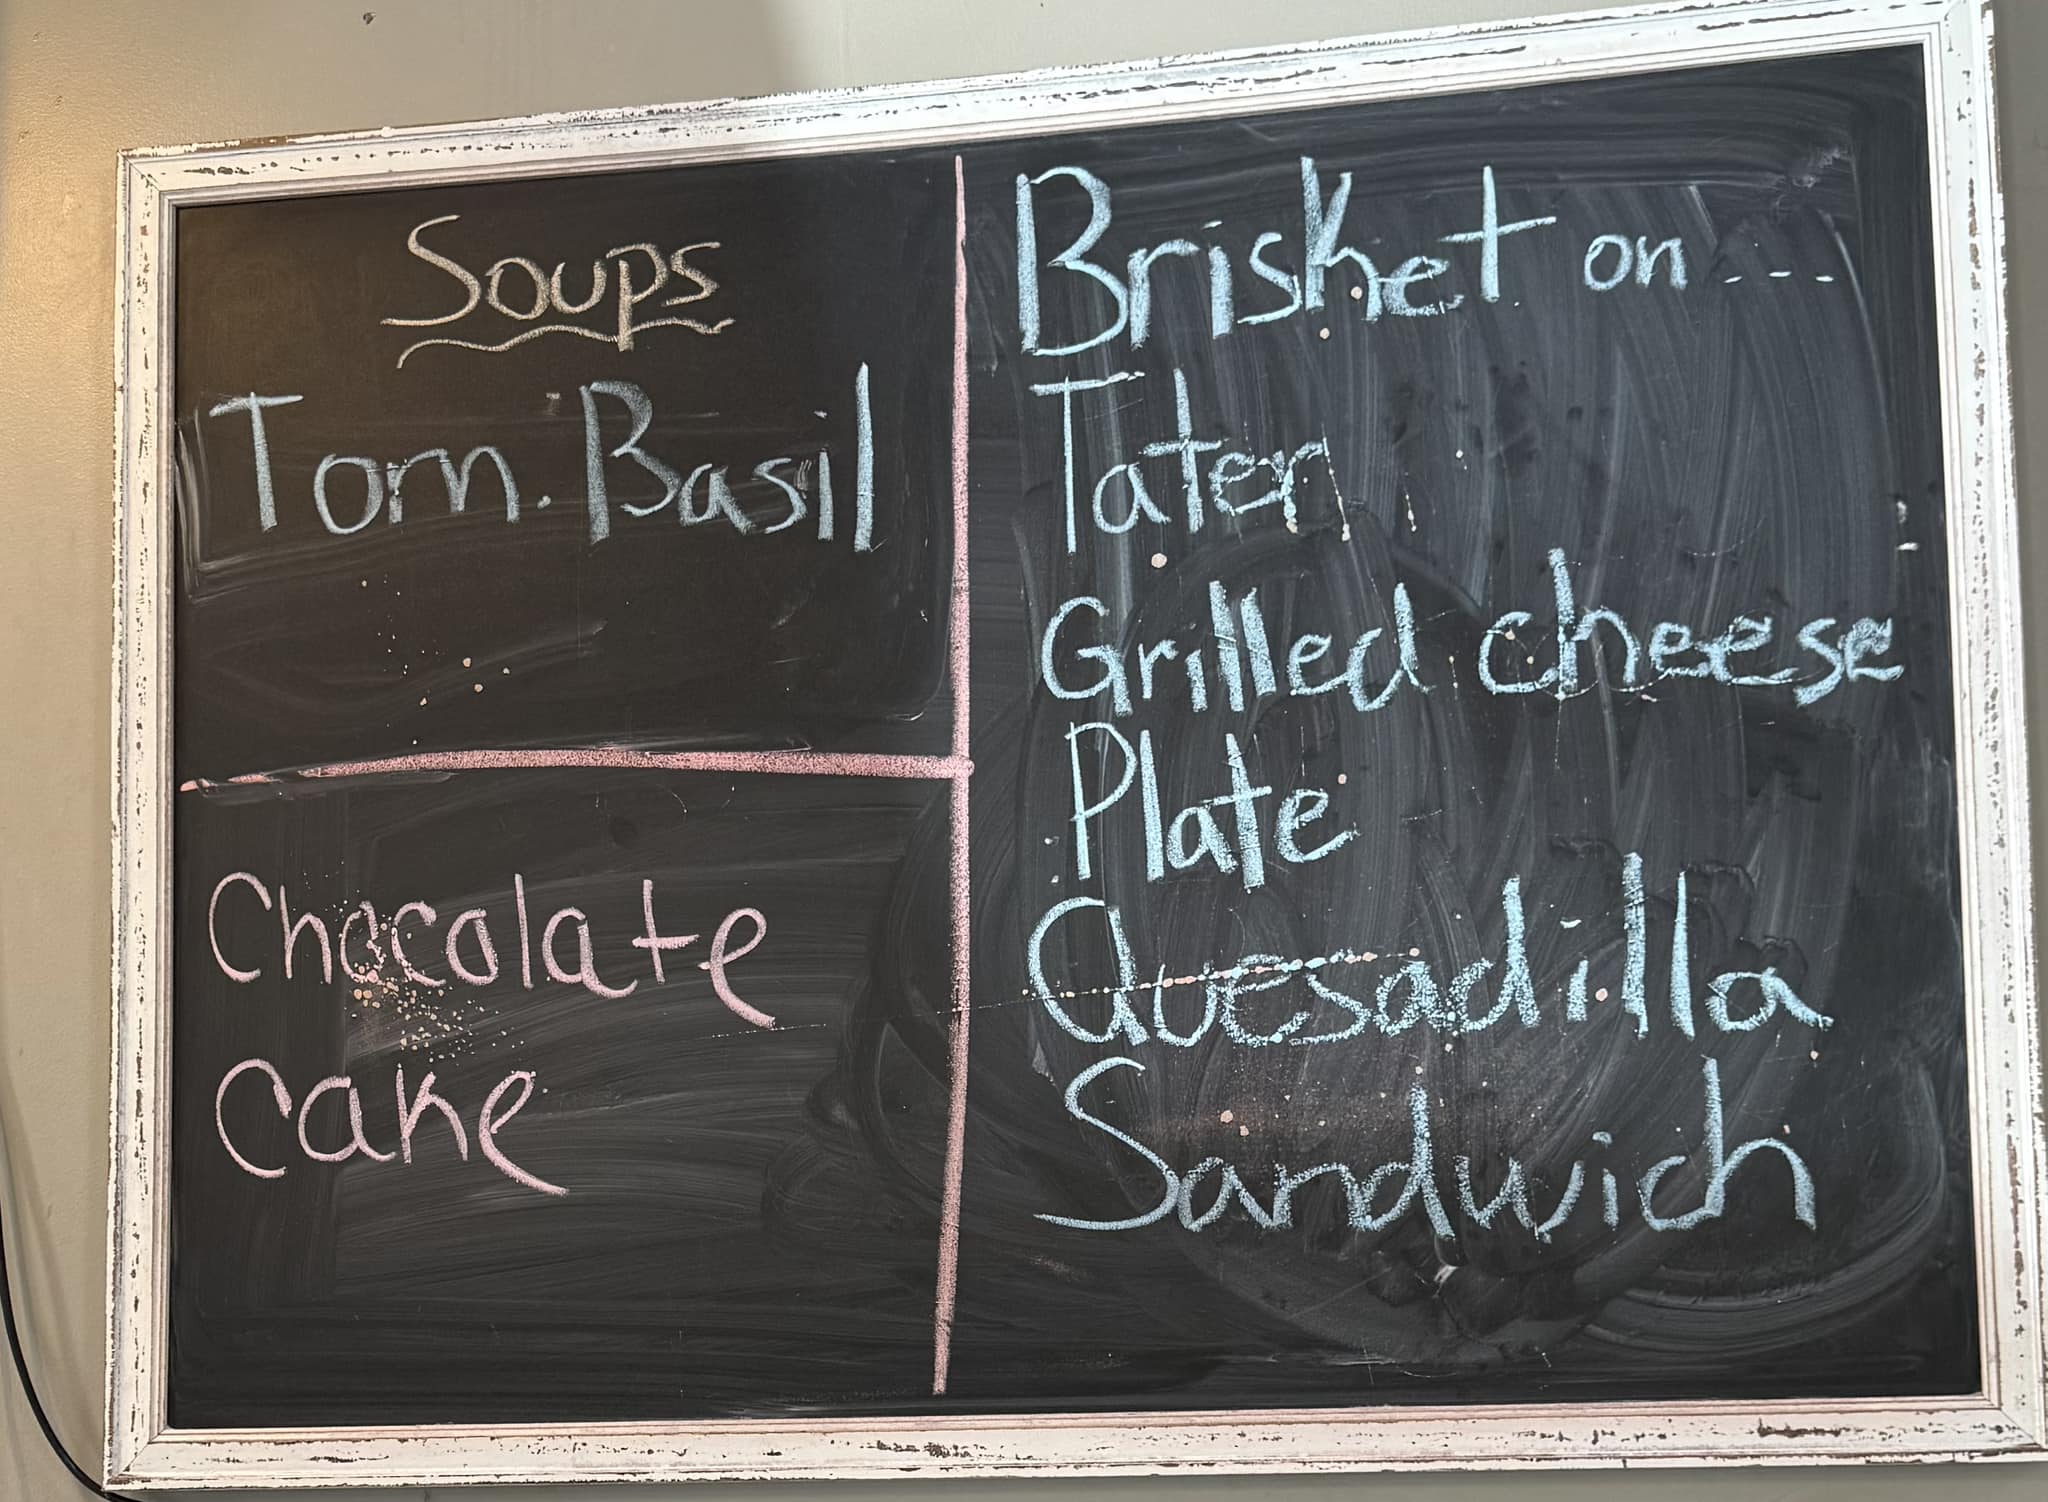 Soups
Tom. Basil
Chocolate
Cake
Brisket on ---
Tater
Grilled cheese
Plate
Quesadilla
Sandwich